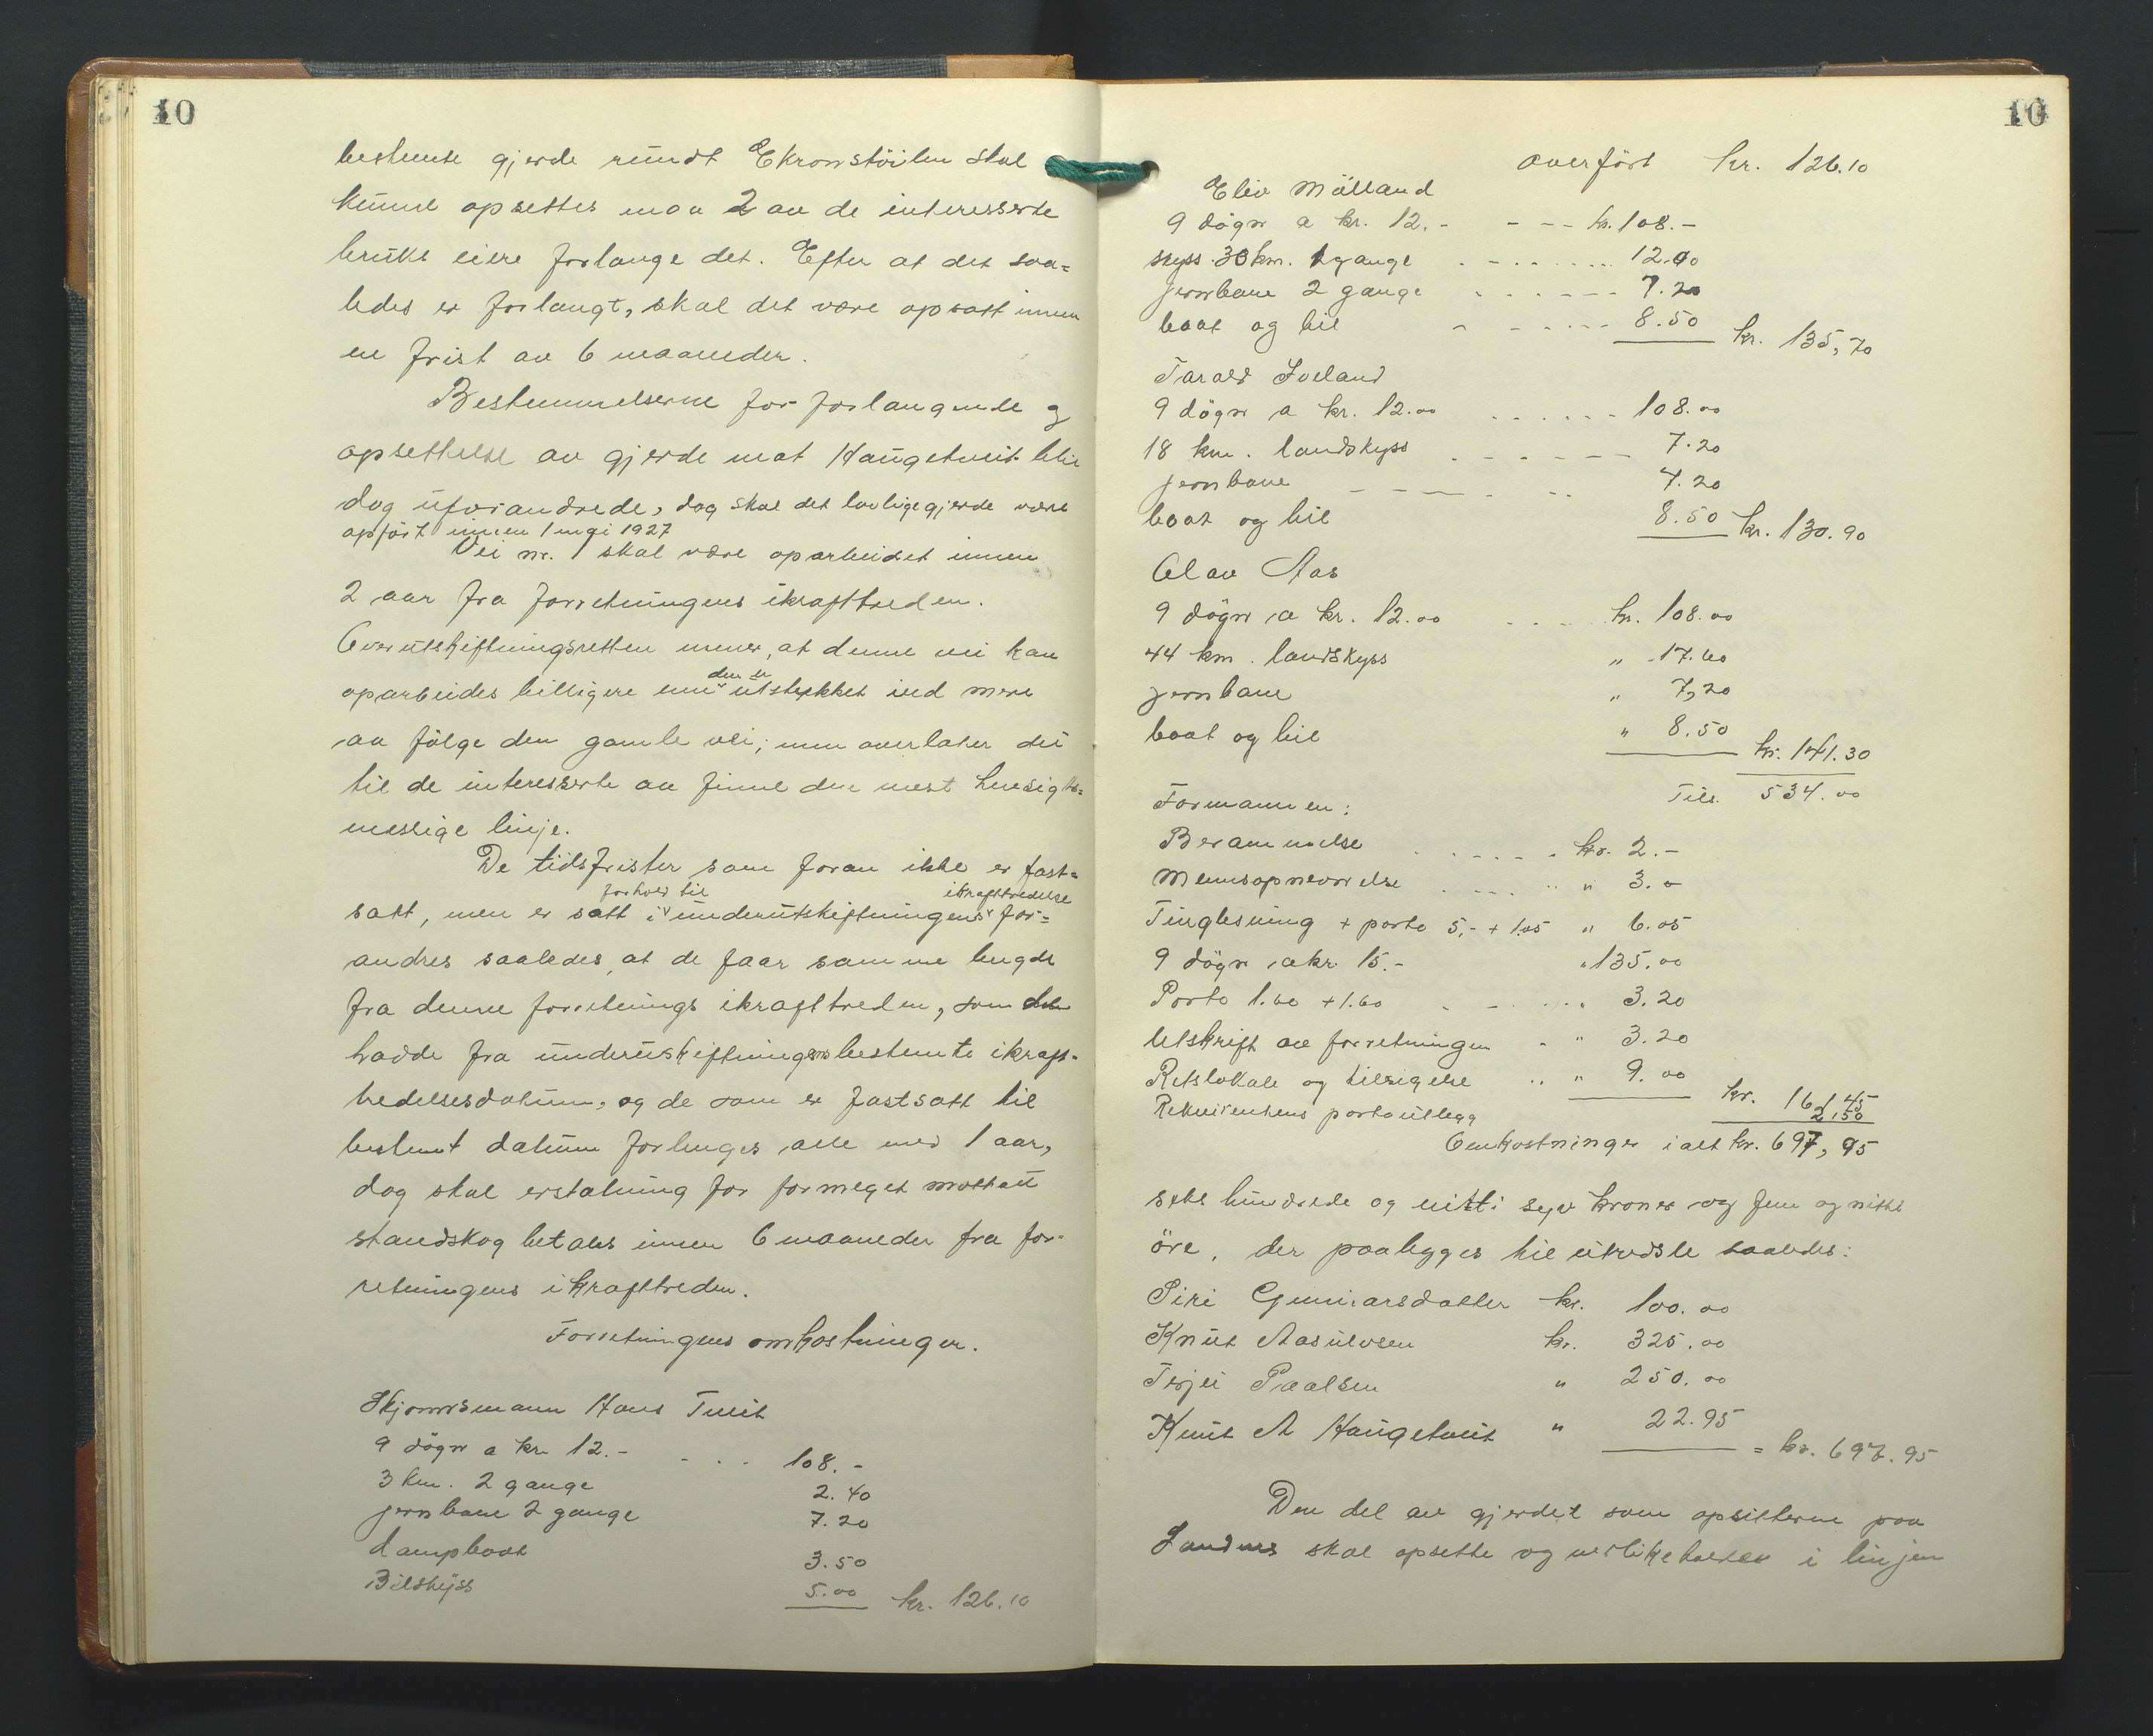 10
bestemte gjerde rundt Ekronstöilen skal
kunne opsettes maa 2 av de interesserte
bruks eiere forlange det. Efter at det saa=
ledes er forlangt, skal det være opsatt innen
en frist av 6 maaneder.
Bestemmelserne for forlangende og
opsettelse av gjerde mot Haugetveit blir
dog uforandrede, dog skal det lovlige gjerde være
opfört innen 1 mai 1927
Vei nr. 1 skal være oparbeidet innen
2 aar fra forretningens ikrafttreden.
Overutskiftningsretten mener, at denne vei kan
oparbeides billigere enn den er utstukket ved mere
aa fölge den gamle vei; men overlater det
til de interesserte aa finne den mest hensigts=
messige linje.
De tidsfrister som foran ikke er fast=
satt, men er satt i forhold til underutskiftningens ikrafttredelse for=
andres saaledes, at de faar samme lengde
fra denne forretnings ikrafttreden, som de
hadde fra underuskiftningens bestemte ikraft-
tredelsesdatum, og de som er fastsatt til
bestemt datum forlenges alle med 1 aar,
dog skal erstatning for formeget mottatt
standskog betales innen 6 maaneder fra for-
retningens ikrafttreden.
Forretningens omkostninger.
Skjönnsmann Hans Tveit
9 dögn a kr 12.- . . . 108.-
3 km. 2 gange 2.40
jernbane 2 gange 7.20
dampbaat 3.50
Bilskyss 5.00 kr. 126.10
10
Overfört kr. 126.10
Eliv Mölland
9 dögn a kr. 12.- - - - kr. 108.-
skyss 30 km. 1 gange . - . . . . . 12.00
jernbane 2 gange . . . - - - 7.20
baat og bil - - . . . - 8.50 kr. 135,70
Tarald Loeland
9 dögn a kr. 12.00 . . . . . - 108.00
18 km. landskyss . - . - - - 7.20
jernbane - - - - . . . 7.20
baat og bil 8.50 kr. 130.90
Olav Aas
9 dögn a kr. 12.00 . . . kr. 108.00
44 km. landskyss " 17.60
jernbane " 7,20
baat og bil " 8.50
kr. 141.30
Tils. 534.00
Formannen:
Berammelse . . - - - . kr. 2.-
Mennsopnevnelse . . . . . " 3.-
Tinglesning + porto 5,- + 1.05 " 6.05
9 dögn a kr. 15.- " 135.00
Porto 1.60 + 1.60 . - . . . " 3.20
Utskrift av forretningen - " 3.20
Retslokale og tilsigelse . . " 9.00
kr. 161,45
Rekvirentens portoutlegg 2,50
Omkostninger i alt kr. 697,95
seks hundrede og nitti syv kroner og fem og nitti
öre, der paalegges til utredsle saaledes:
Siri Gunnarsdatter kr. 100.00
Knut Aasulvsen kr. 325.00
Terjei Paalsen " 250.00
Knut A Haugetveit " 22.95
= kr. 697.95
Den del av gjerdet som opsitterne paa
skal opsette og vedlikeholde i linjen